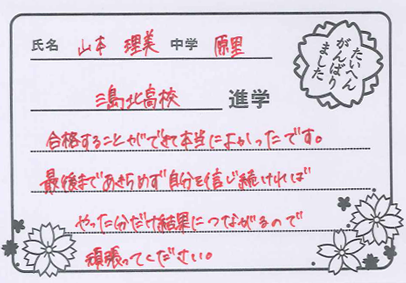 氏名 山本 理美 中学 原里
たいへん
がんばり
ました
三島北高校 進学
合格することができて本当によかったです。
最後まであきらめず自分を信じ続ければ
やった分だけ結果につながるので
頑張ってください。